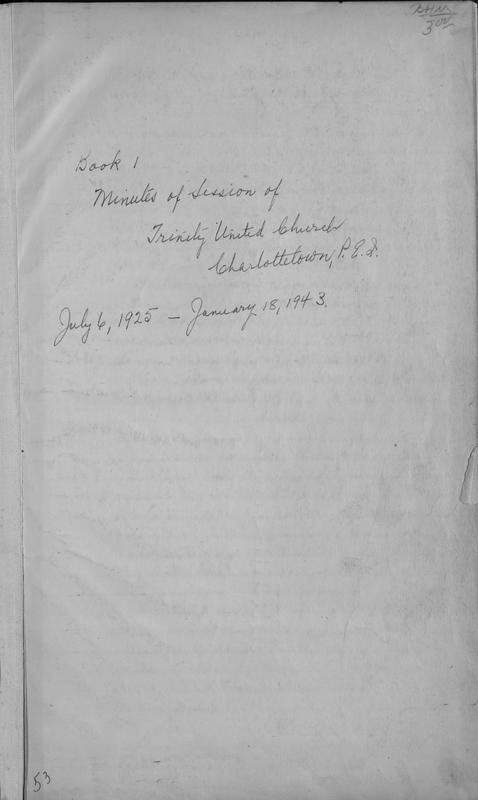 300
Book 1
Minutes of Session of
Trinity United Church
Charlottetown, P.E.I.
July 6, 1925 — January 18, 1943.
53